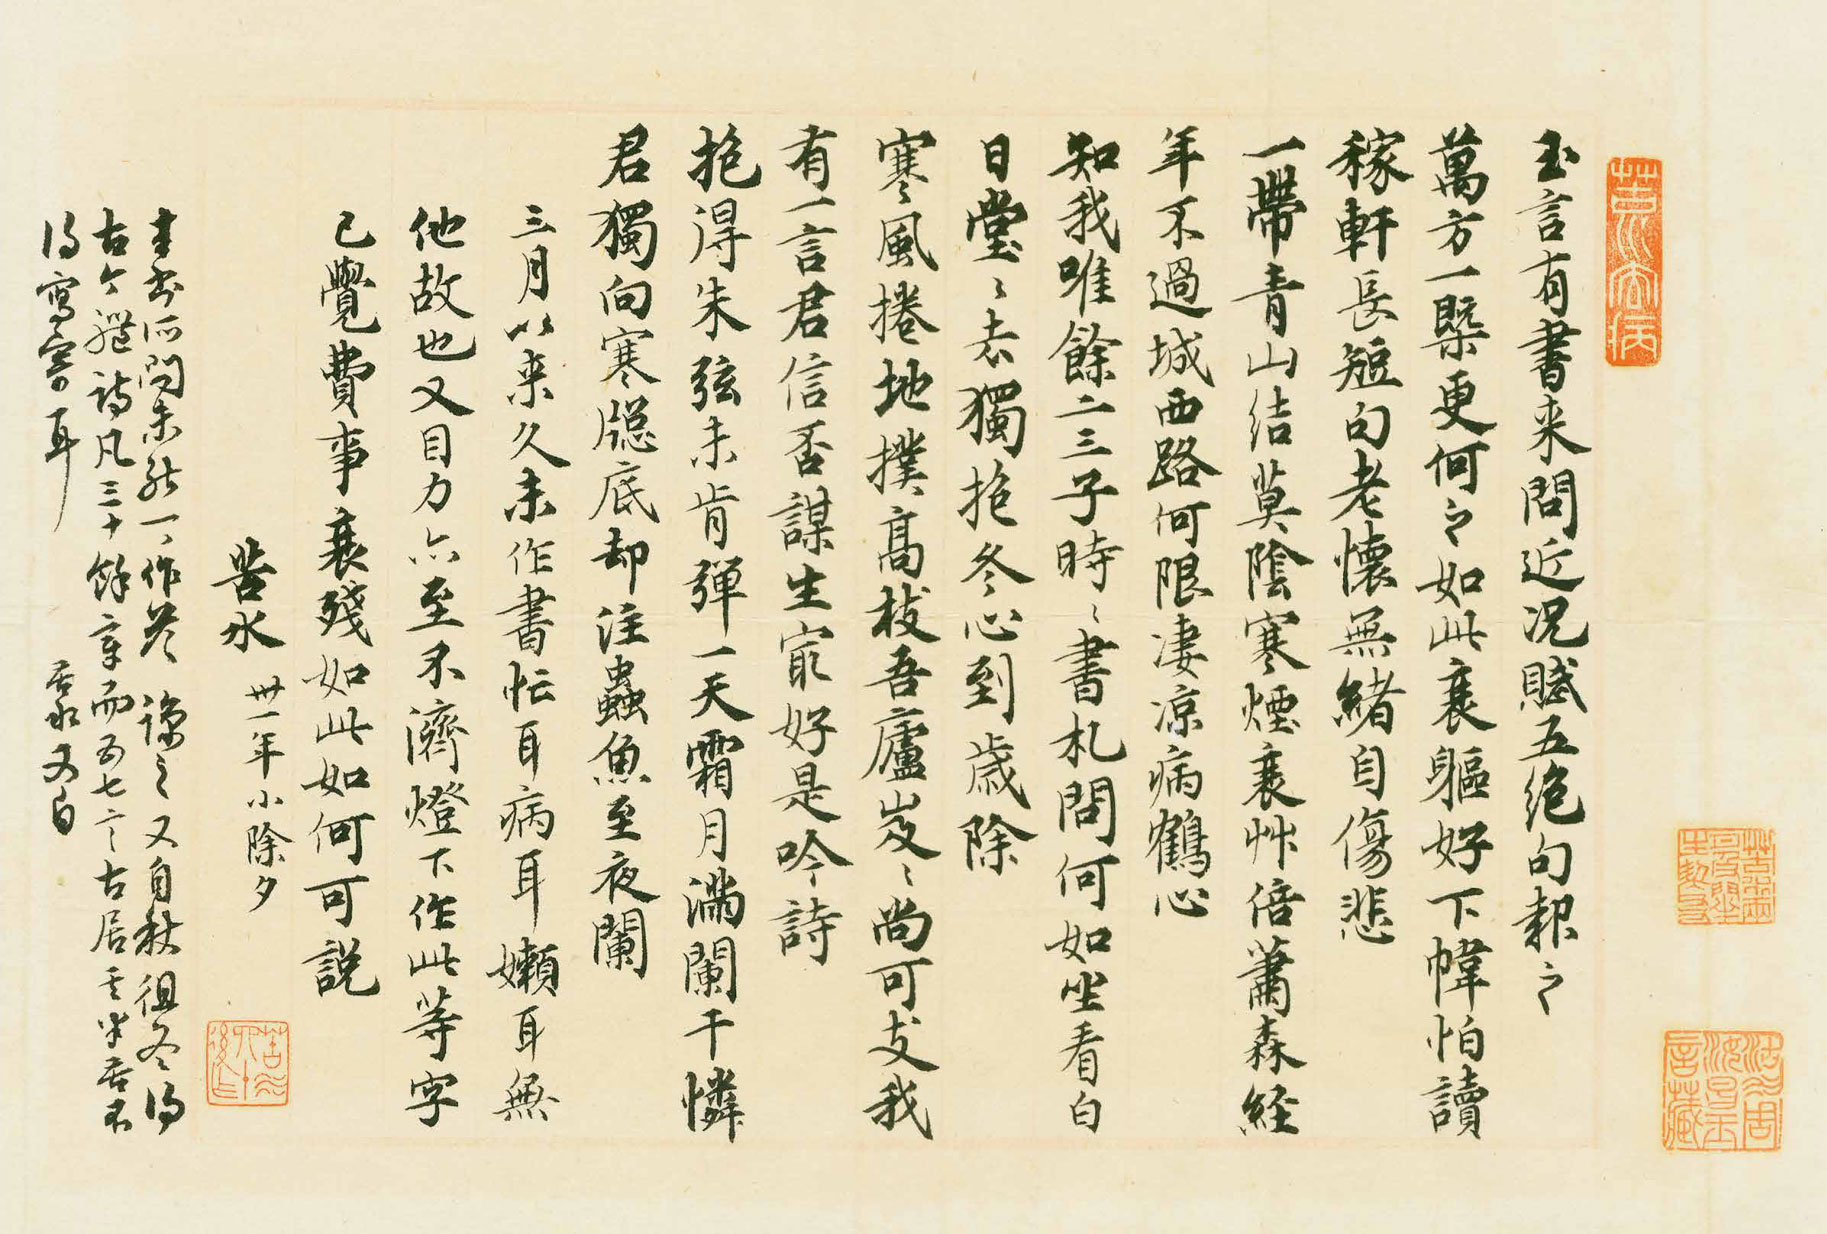 玉言有書来問近況賦五絶句報之
萬方一槩更何之如此衰軀好下幃怕讀
稼軒長短句老懷無緒自傷悲
一帶青山結莫陰寒煙衰艸倍蕭森経
年不過城西路何限淒涼病鶴心
知我唯餘二三子時〻書札問何如坐看白
日堂〻去獨抱冬心到歲除
寒風捲地撲高枝吾廬岌〻尚可支我
有一言君信否謀生最好是吟詩
抱得朱弦未肯彈一天霜月滿闌干憐
君獨向寒牕底却注蟲魚至夜闌
三月以来久未作書忙耳病耳嬾耳無
他故也又目力亦至不濟燈下作此等字
已覺費事衰殘如此如何可説
苦水 卅一年小除夕
来書所問未能一一作答諒之又自秋徂冬得
古今體詩凡三十餘章而五七言古居其半苦不
得寫寄耳 苦水又白